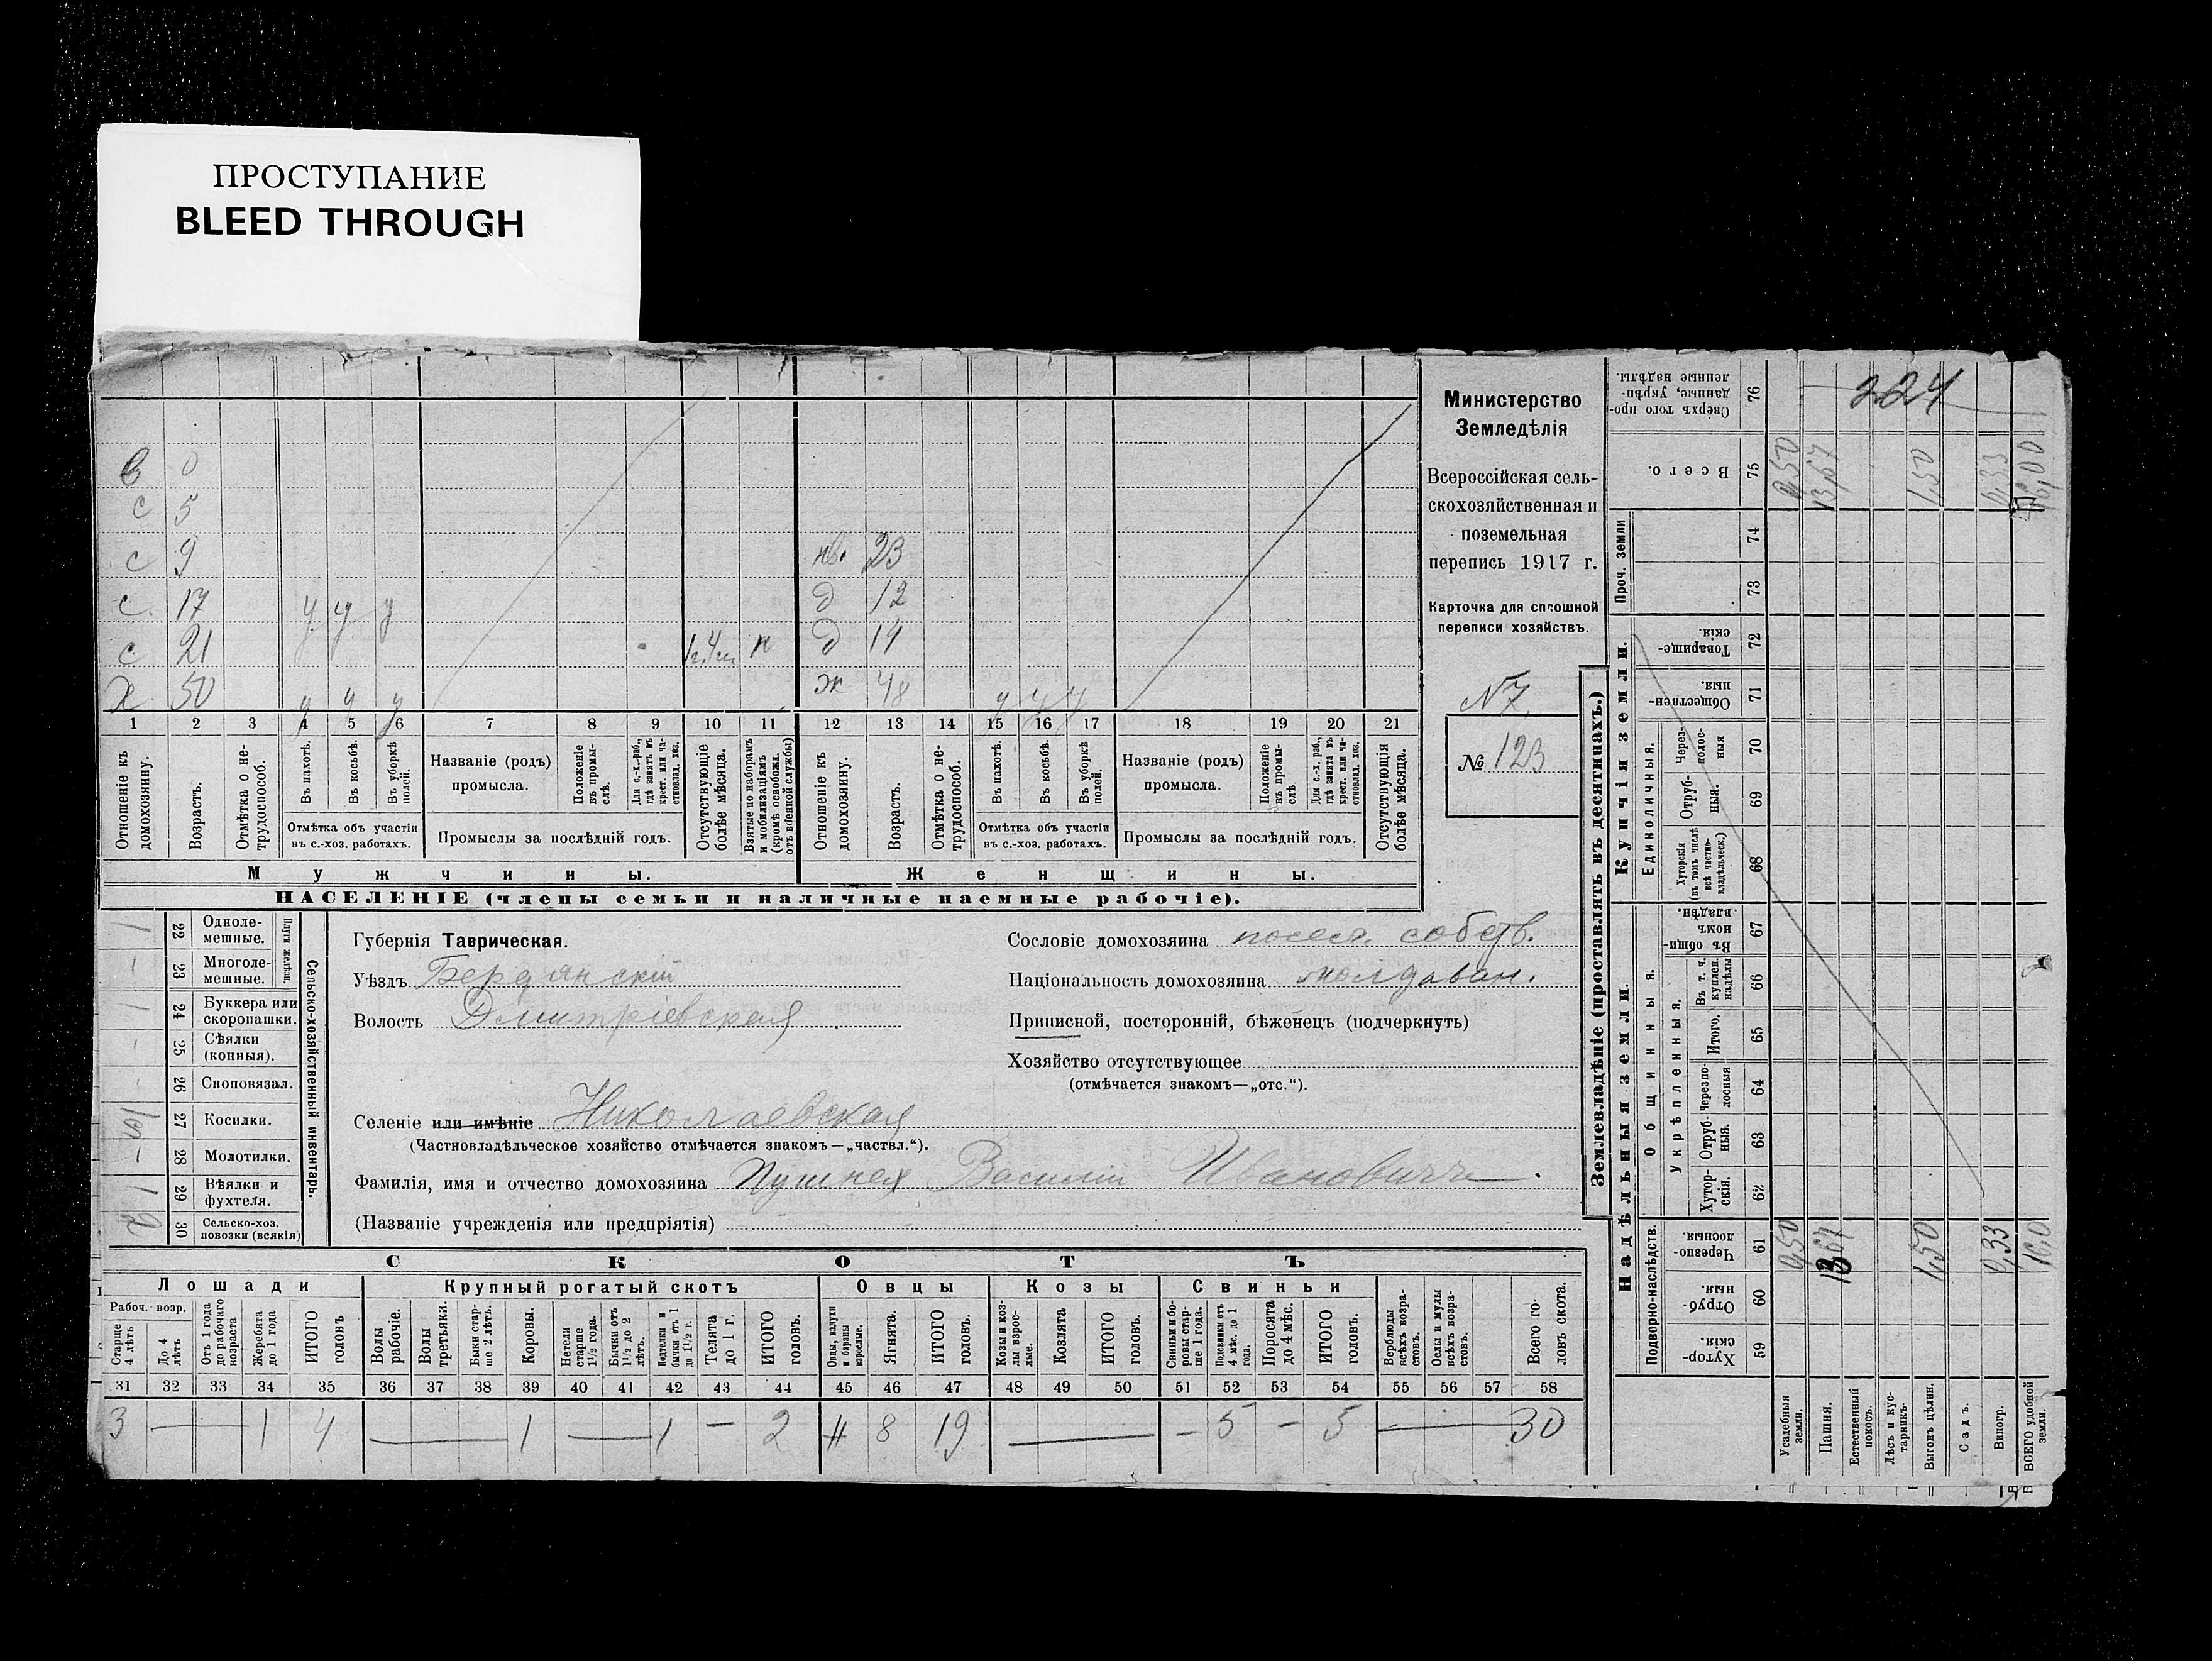 ПРОСТУПАНИЕ
BLEED THROUGH
в 0
с 5
с 9 нв. 23
с. 17 у у у д 12
с 21 к д 14
х 50 у у у ж 48 у у у
1 2 3 4 5 6 7 8 9 10 11 12 13 14 15 16 17 18 19 20 21
Отношеніе къ домохозяину.
Возрастъ.
Отмѣтка о нетрудоспособ.
Въ пахотѣ.
Въ косьбѣ.
Въ уборкѣ полей.
Отмѣтка объ участіи въ с.-хоз. работахъ.
Названіе (родъ) промысла.
Положеніе въ промыслѣ.
Для с.-х. раб., гдѣ занятъ въ крест. или частновлад. хоз.
Промыслы за послѣдній годъ.
Отсутствующіе болѣе мѣсяца.
Взятые по наборамъ и мобилизаціямъ (кромѣ освобожд. отъ военной службы)
Отношеніе къ домохозяину.
Возрастъ.
Отмѣтка о нетрудоспособ.
Въ пахотѣ.
Въ косьбѣ.
Въ уборкѣ полей.
Отмѣтка объ участіи въ с.-хоз. работахъ.
Названіе (родъ) промысла.
Положеніе въ промыслѣ
Для с.-х. раб., гдѣ занята въ крест. или частновлад. хоз.
Промыслы за послѣдній годъ.
Отсутствующія болѣе мѣсяца.
Мужчины. Женщины.
НАСЕЛЕНІЕ (члены семьи и наличные наемные рабочіе).
Министерство
Земледѣлія
Всероссійская сель-
скохозяйственная и
поземельная
перепись 1917 г.
Карточка для сплошной
переписи хозяйствъ.
N 7.
№ 123
Плуги желѣзн.
22 Одноле-мешные. 1
23 Многоле-мешные. –
24 Буккера или скоропашки. 1
25 Сѣялки (конныя). –
26 Сноповязал. –
27 Косилки.
28 Молотилки. –
29 Вѣялки и фухтеля. 1
30 Сельско-хоз. повозки (всякія) 2
Сельско-хозяйственный инвентарь.
Губернія Таврическая.
Уѣздъ Бердянскій
Волость Дмитріевская
Селеніе или имѣніе Николаевская
(Частновладѣльческое хозяйство отмѣчается знакомъ—„частвл.“).
Фамилія, имя и отчество домохозяина Пушкел Василій Ивановичъ.
(Названіе учрежденія или предпріятія)
Сословіе домохозяина посел. собств.
Національность домохозяина молдаван.
Приписной, посторонній, бѣженецъ (подчеркнуть)
Хозяйство отсутствующее
(отмѣчается знакомъ—„отс.“).
СКОТЪ
Лошади Крупный рогатый скотъ Овцы Козы Свиньи
Рабоч. возр.
Старше 4 лѣтъ
До 4 лѣтъ
Отъ 1 года до рабочаго возраста
Жеребята до 1 года
ИТОГО головъ.
Волы рабочіе.
Волы третьяки.
Быки старше 2 лѣтъ.
Коровы.
Нетели старше 1½ года.
Бычки отъ 1½ до 2 лѣтъ.
Подтелки и бычки отъ 1 до 1½ г.
Телята до 1 г.
ИТОГО головъ.
Овцы, валухи и бараны взрослые.
Ягнята.
ИТОГО головъ.
Козы и козлы взрослые.
Козлята
ИТОГО головъ.
Свиньи и боровы старше 1 года.
Подсвинки отъ 4 мѣс. до 1 года.
Поросята до 4 мѣс.
ИТОГО головъ.
Верблюды всѣхъ возрастовъ.
Ослы и мулы всѣхъ возрастовъ.
Всего головъ скота.
31 32 33 34 35 36 37 38 39 40 41 42 43 44 45 46 47 48 49 50 51 52 53 54 55 56 57 58
3 — 1 4 — 1 — 1 – 2 11 8 19 — – 5 – 5 — 30
Землевладѣніе (проставлять въ десятинахъ.)
Надѣльныя земли. Купчія земли.
Проч. земли
Подворно-наслѣдств.
Общинныя.
Укрѣпленныя.
Единоличныя.
76 Сверхъ того проданные, укрѣпленные надѣлы. 224
75 Всего. 0,50 13,67 1,50 0,33 16,00
74
73
72 Товарищескія.
71 Общественныя.
70 Через-полосныя
69 Отрубныя.
68 Хуторскія (въ томъ числѣ всѣ частновладѣльческ.)
67 Въ общинномъ владѣн.
66 Въ т. ч. куплен. надѣлы
65 Итого.
64 Черезполосныя
63 Отрубныя.
62 Хуторскія.
61 Черезполосныя. 0,50 13,67 1,50 0,33 16,0
60 Отрубныя.
59 Хуторскія.
Усадебныя земли.
Пашня.
Естественный покосъ.
Лѣсъ и кустарникъ.
Выгонъ цѣлин.
Садъ.
Виногр.
ВСЕГО удобной земли.